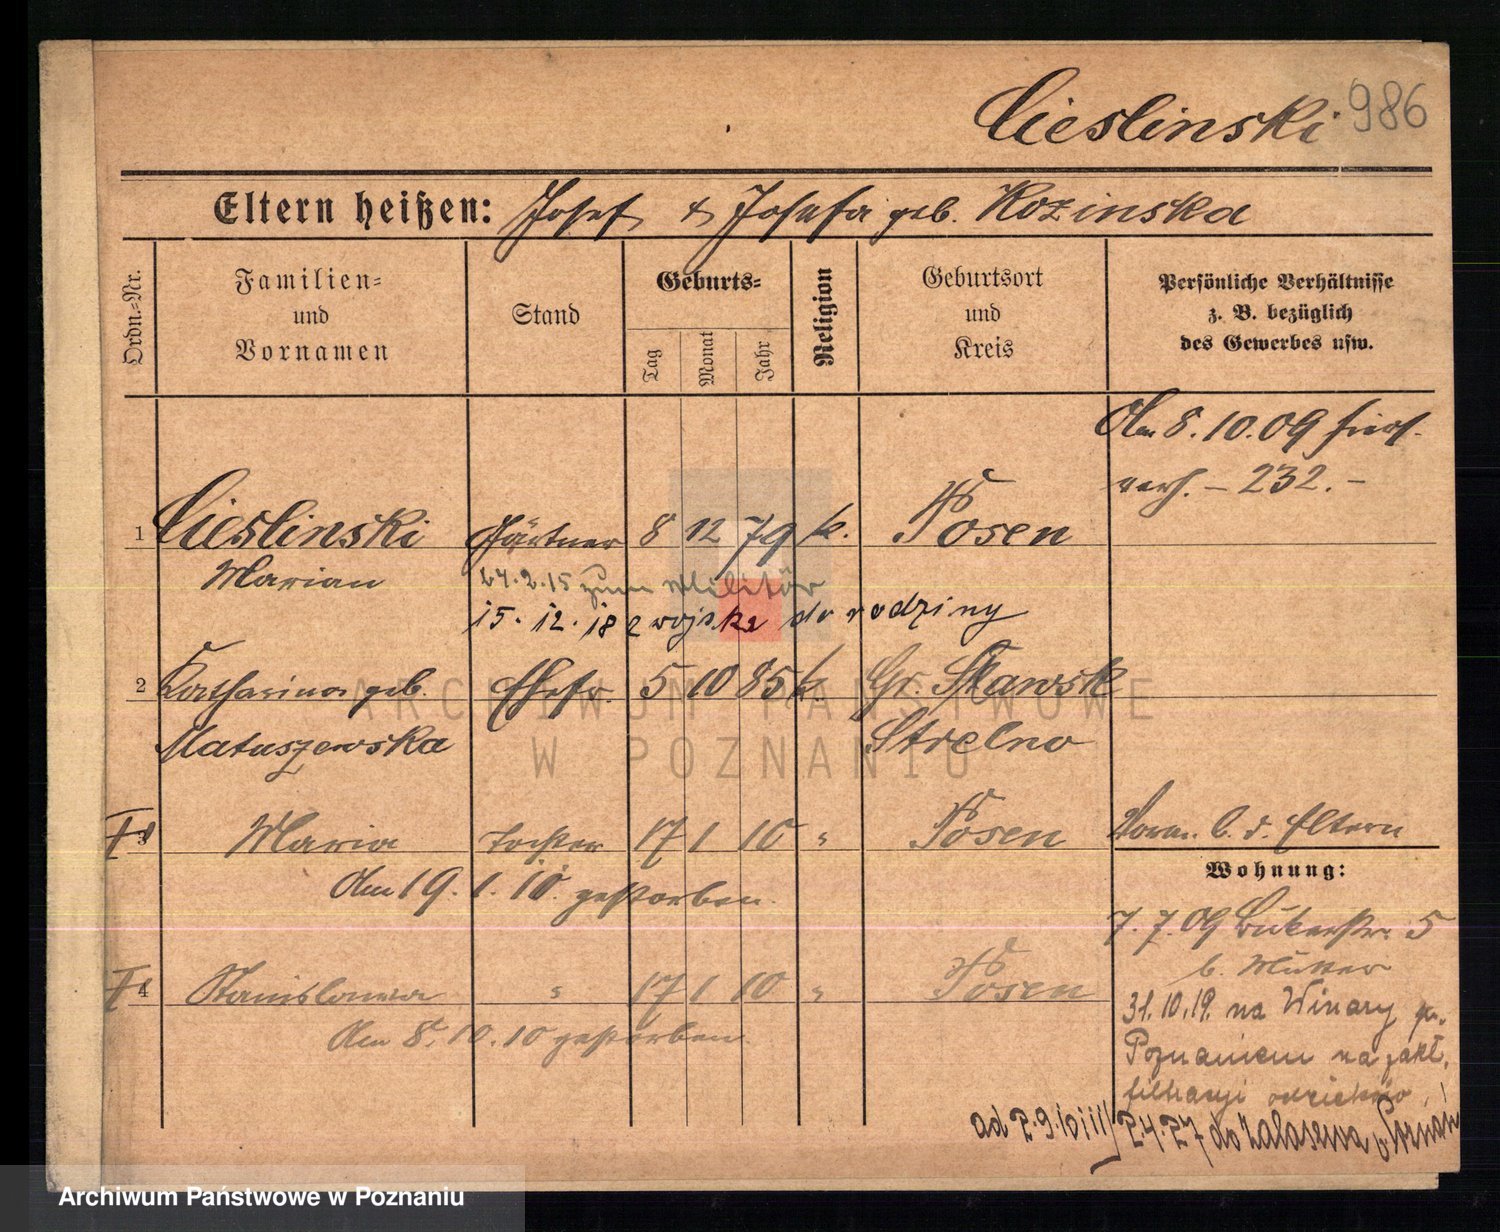 Cieslinski 986
Eltern heißen: Josef & Josefa geb. Kozinska
Ordn.-Nr.
Familien-
und
Vornamen
Stand
Geburts-
Tag
Monat
Jahr
Religion
Geburtsort
und
Kreis
Persönliche Verhältnisse
z. B. bezüglich
des Gewerbes usw.
Am 8.10.09 hier
verh. – 232. –
1 Cieslinski Gärtner 8 12 79 k. Posen
Marian
24.2.15 zum Militär
15.12.18 z wojska do rodziny
2 Katharina geb. Ehefr. 5 10 85 k. Gr. Slawsk
Matuszewska Strelno
3 Maria Tochter 17 1 10 " Posen
b. d. Eltern
Am 19.1.10 gestorben.
Wohnung:
7.7.09 Bukerstr. 5
b. Mutter
4 Stanislawa " 17 1 10 " Posen
Am 8.10.10 gestorben.
31.10.19. na Winary
Poznaniem na zakł.
filtracyi
ad 2.9.10
2.4.27 do Zalasewa p. Poznań
ARCHIWUM PAŃSTWOWE
W POZNANIU
Archiwum Państwowe w Poznaniu